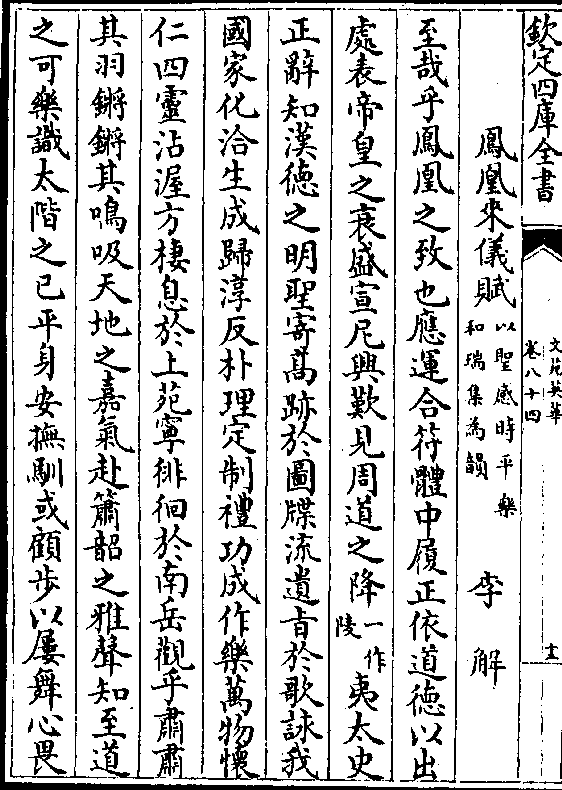 欽定四庫全書
文苑英華
卷八十四
十三
鳳凰來儀賦 以聖感時平樂和瑞集為韻 李解
至哉乎鳳凰之致也應運合符體中履正依道德以出
處表帝皇之衰盛宣尼興歎見周道之降一作陵夷太史
正辭知漢德之明聖寄高跡於圖牒流遺旨於歌詠我
國家化洽生成歸淳反朴理定制禮功成作樂萬物懷
仁四靈沾渥方棲息於上苑寧徘徊於南岳觀乎肅肅
其羽鏘鏘其鳴吸天地之嘉氣赴簫韶之雅聲知至道
之可樂識太階之已平身安撫馴或顧步以屢舞心畏